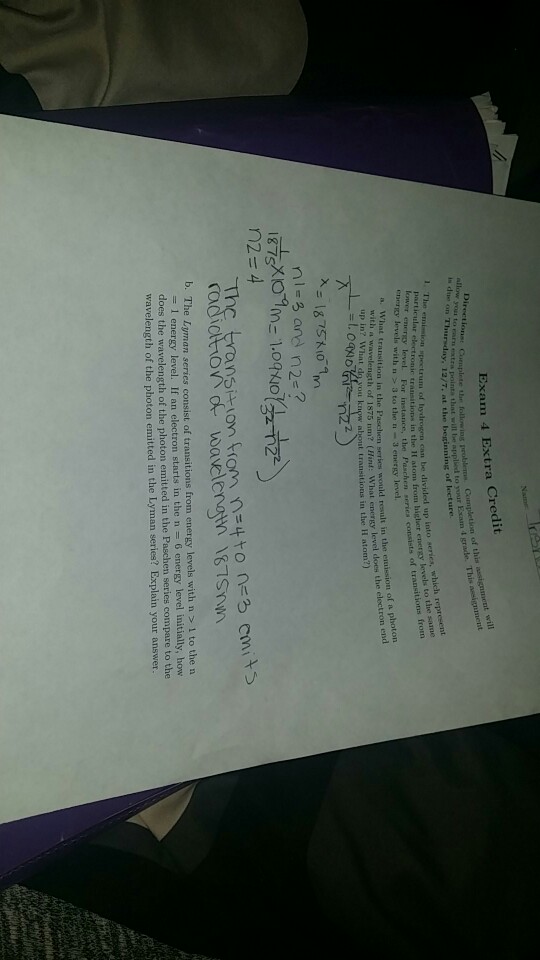 Name:
Exam 4 Extra Credit
Directions: Complete the following problems. Completion of this assignment will
allow you to earn extra points that will be applied to your Exam 4 grade. This assignment
is due on Thursday, 12/7, at the beginning of lecture.
1. The emission spectrum of hydrogen can be divided up into series, which represent
particular electronic transitions in the H atom from higher energy levels to the same
lower energy level. For instance, the Paschen series consists of transitions from
energy levels with n > 3 to the n = 3 energy level.
a. What transition in the Paschen series would result in the emission of a photon
with a wavelength of 1875 nm? (Hint: What energy level does the electron end
up in? What do you know about transitions in the H atom?)
λ = 1875x10⁻⁹ m
n1=3 and n2=?
1/1875x10⁻⁹m = 1.09x10⁷(1/3² - 1/n2²)
n2=4
The transition from n=4 to n=3 emits
radiation of wavelength 1875nm
b. The Lyman series consist of transitions from energy levels with n > 1 to the n
= 1 energy level. If an electron starts in the n = 6 energy level initially, how
does the wavelength of the photon emitted in the Paschen series compare to the
wavelength of the photon emitted in the Lyman series? Explain your answer.